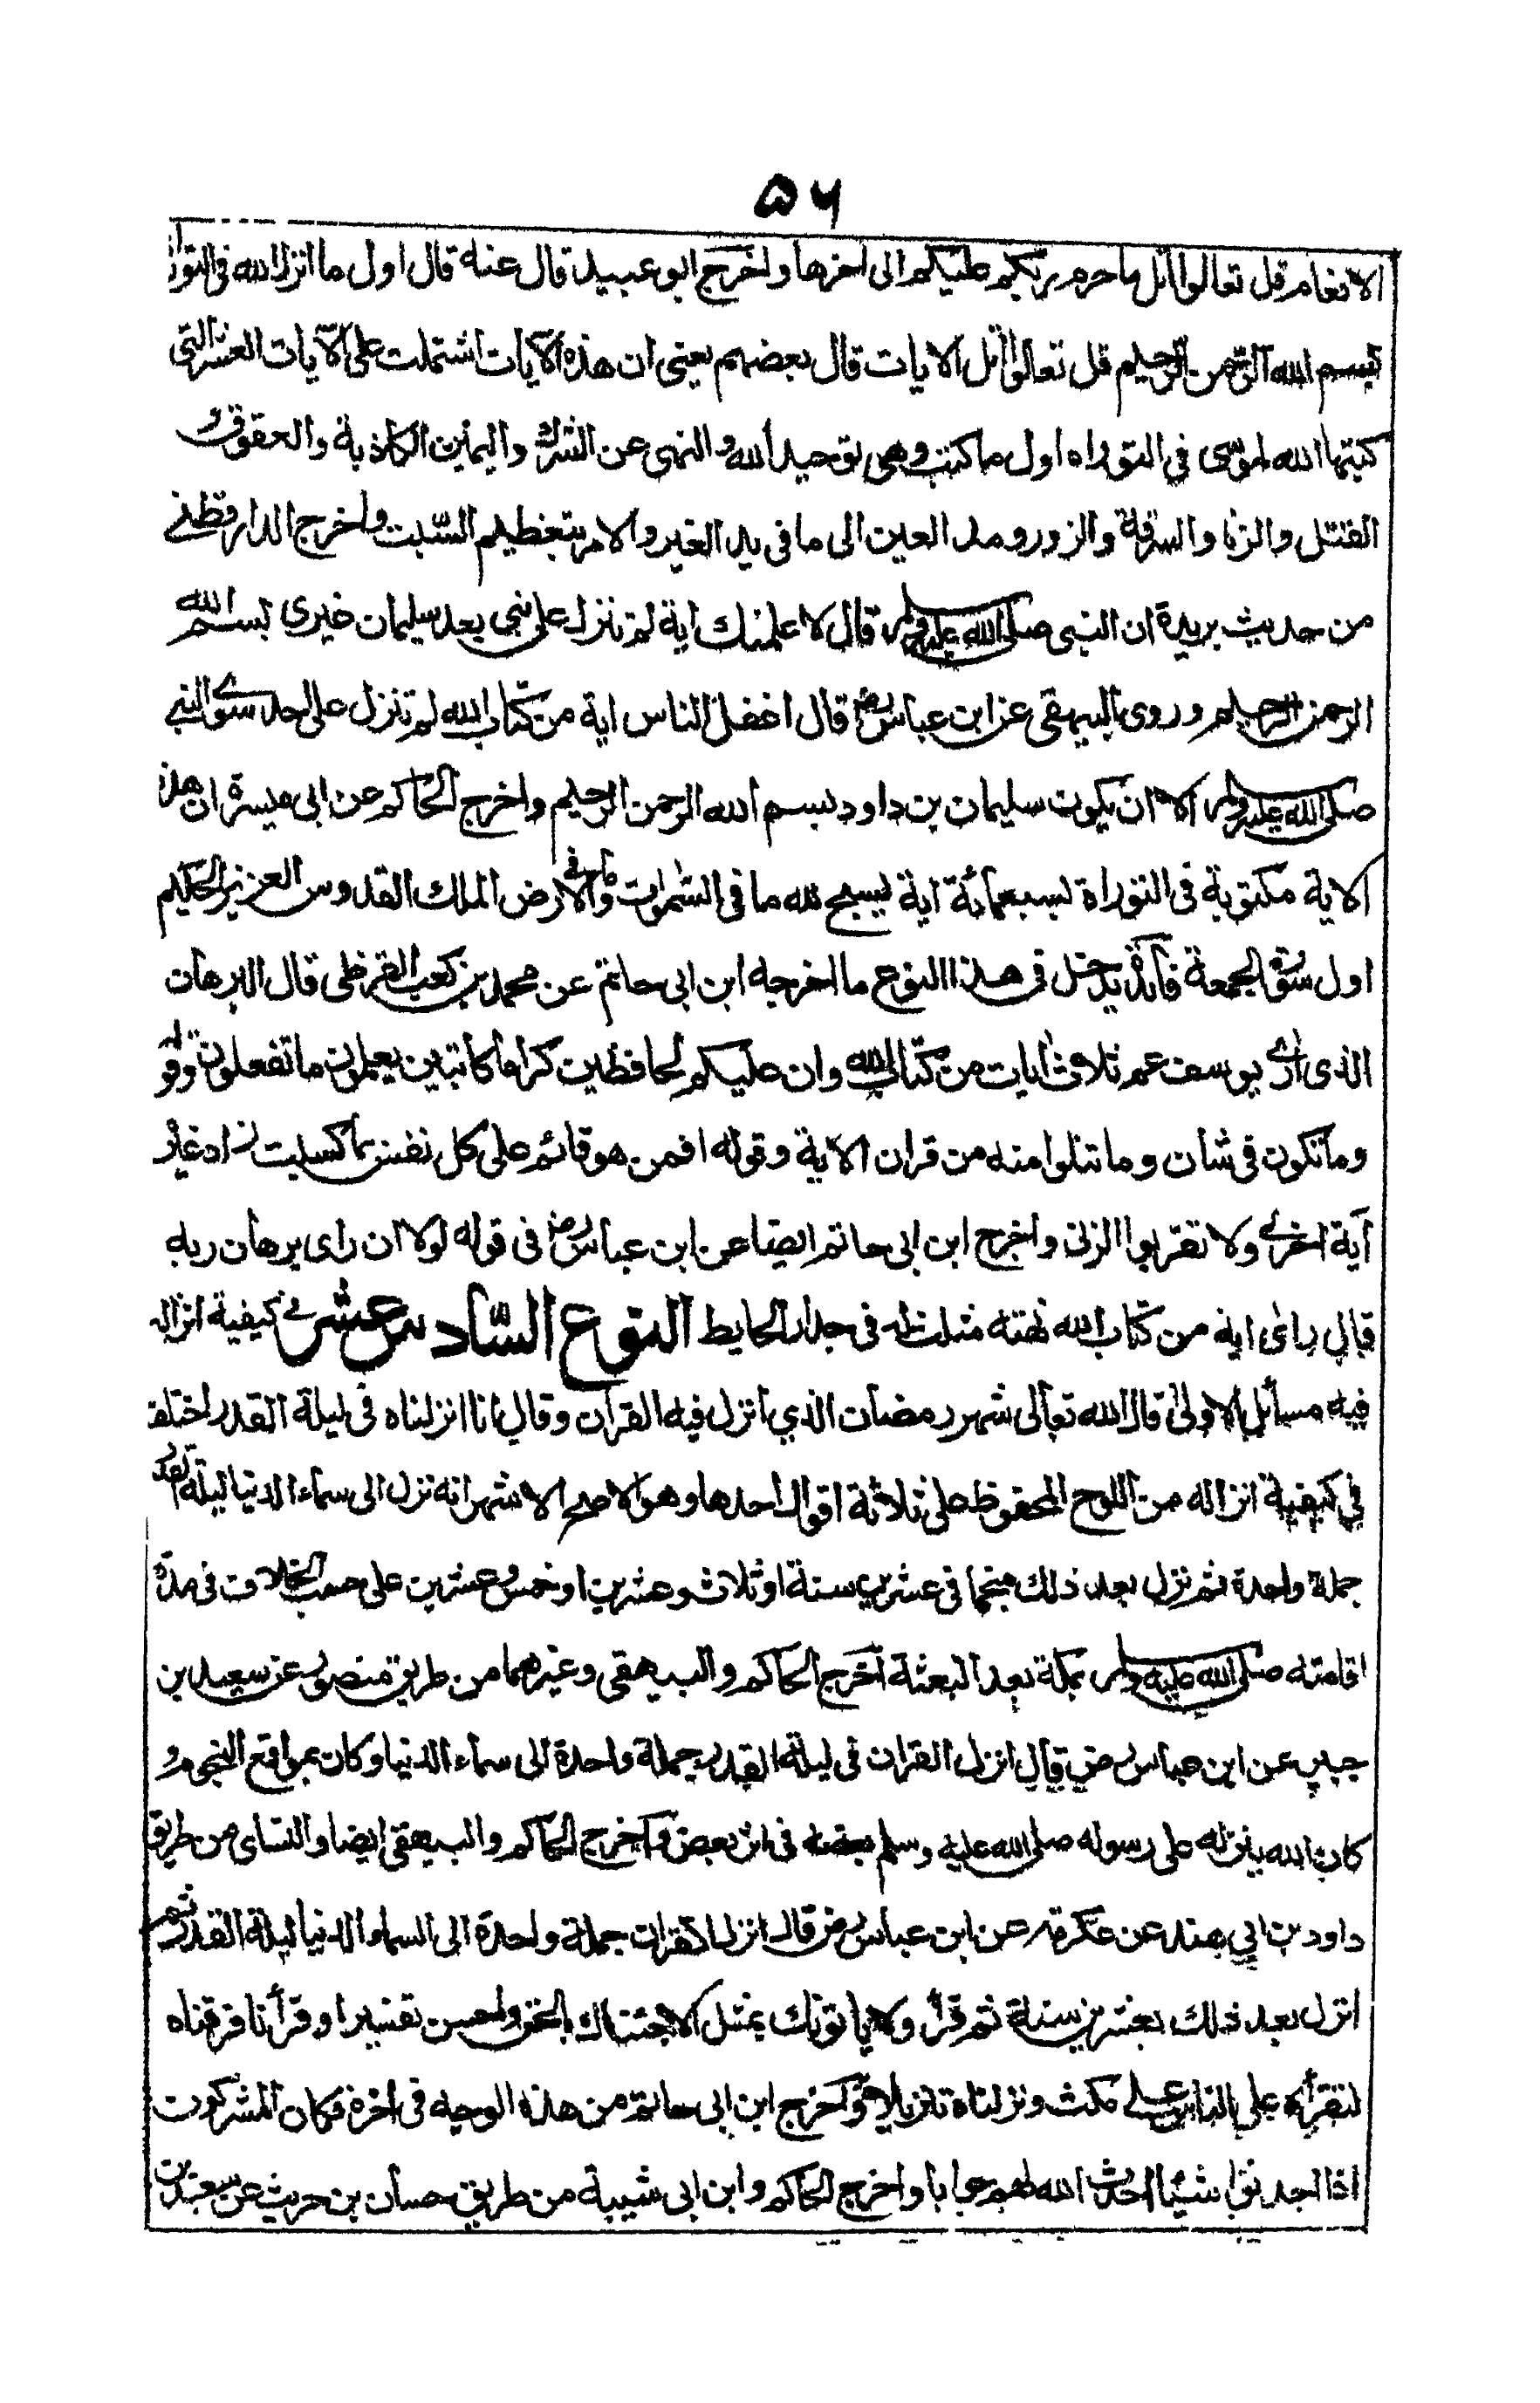 ٥٦
الانعام قل تعالوا اتل ما حرم ربكم عليكم الى اخرها واخرج ابو عبيد قال عنه قال اول ما انزل الله فى التوراة
بسم الله الرحمن الرحيم قل تعالوا اتل الايات قال بعضهم يعنى ان هذه الآيات اشتملت على الآيات العشر التى
كتبها الله لموسى فى التوراه اول ما كتب وهى توحيد الله والنهى عن الشرك واليمين الكاذبة والعقوق و
القتل والزنا والسرقة والزور ومد العين الى ما فى يد الغير والامر بتعظيم السّبت واخرج الدارقطنے
من حديث بريدة ان النبى صلى الله عليه وسلم قال لاعلمنك اية لم تنزل على نبى بعد سليمان غيرى بسم الله
الرحمن الرحيم وروى البيهقى عن ابن عباس رض قال اغفل الناس اية من كتاب الله لم تنزل على احد سوى النبے
صلى الله عليه وسلم الا ان يكون سليمان بن داود بسم الله الرحمن الرحيم واخرج الحاكم عن ابى ميسرة ان هذه
الاية مكتوبة فى التوراة بسبعمائة آية يسبح لله ما فى السّموات وما فى الارض الملك القدوس العزيز الحكيم
اول سورة الجمعة فائدة يدخل فى هذا النوع ما اخرجه ابن ابى حاتم عن محمد بن كعب القرظى قال البرهان
الذى ارى يوسف عم ثلاث ايات من كتاب الله وان عليكم لحافظين كراما كاتبين يعلمون ما تفعلون وقوله
وما تكون فى شأن وما تتلوا منه من قران الاية وقوله افمن هو قائم على كل نفس بما كسبت زاد غيره
آية اخرى ولا تقربوا الزنى واخرج ابن ابى حاتم ايضا عن ابن عباس رض فى قوله لولا ان راى برهان ربه
قال راى اية من كتاب الله نهته مثلت له فى جدار الحايط النوع السّادس عشر فى كيفية انزاله
فيه مسائل الاولى قال الله تعالى شهر رمضان الذي انزل فيه القرآن وقال انا انزلناه فى ليلة القدر اختلف
في كيفية انزاله من اللوح المحفوظ على ثلاثة اقوال احدها وهو الاصح الاشهر انه نزل الى سماء الدنيا ليلة القدر
جملة واحدة ثم نزل بعد ذلك منجما فى عشرين سنة او ثلاث وعشرين او خمس وعشرين على حسب الخلاف فى مدة
اقامته صلى الله عليه وسلم بمكة بعد البعثة اخرج الحاكم والبيهقى وغيرهما من طريق منصور عن سعيد بن
جبير عن ابن عباس رض قال انزل القران فى ليلة القدر جملة واحدة الى سماء الدنيا وكان بمواقع النجوم و
كان الله ينزله على رسوله صلى الله عليه وسلم بعضه فى اثر بعض واخرج الحاكم والبيهقى ايضا والنساى من طريق
داود بن ابي هند عن عكرمة عن ابن عباس رض قال انزل القران جملة واحدة الى السماء الدنيا ليلة القدر ثم
انزل بعد ذلك بعشرين سنة ثم قرأ ولا ياتونك بمثل الا جئناك بالحق واحسن تفسيرا وقرأنا فرقناه
لتقرأه على الناس على مكث ونزلناه تنزيلا واخرج ابن ابى حاتم من هذه الوجه فى اخرة فكان المشركون
اذا احدثوا شيئا احدث الله لهم جوابا واخرج الحاكم وابن ابى شيبة من طريق حسان بن حريث عن سعيد بن